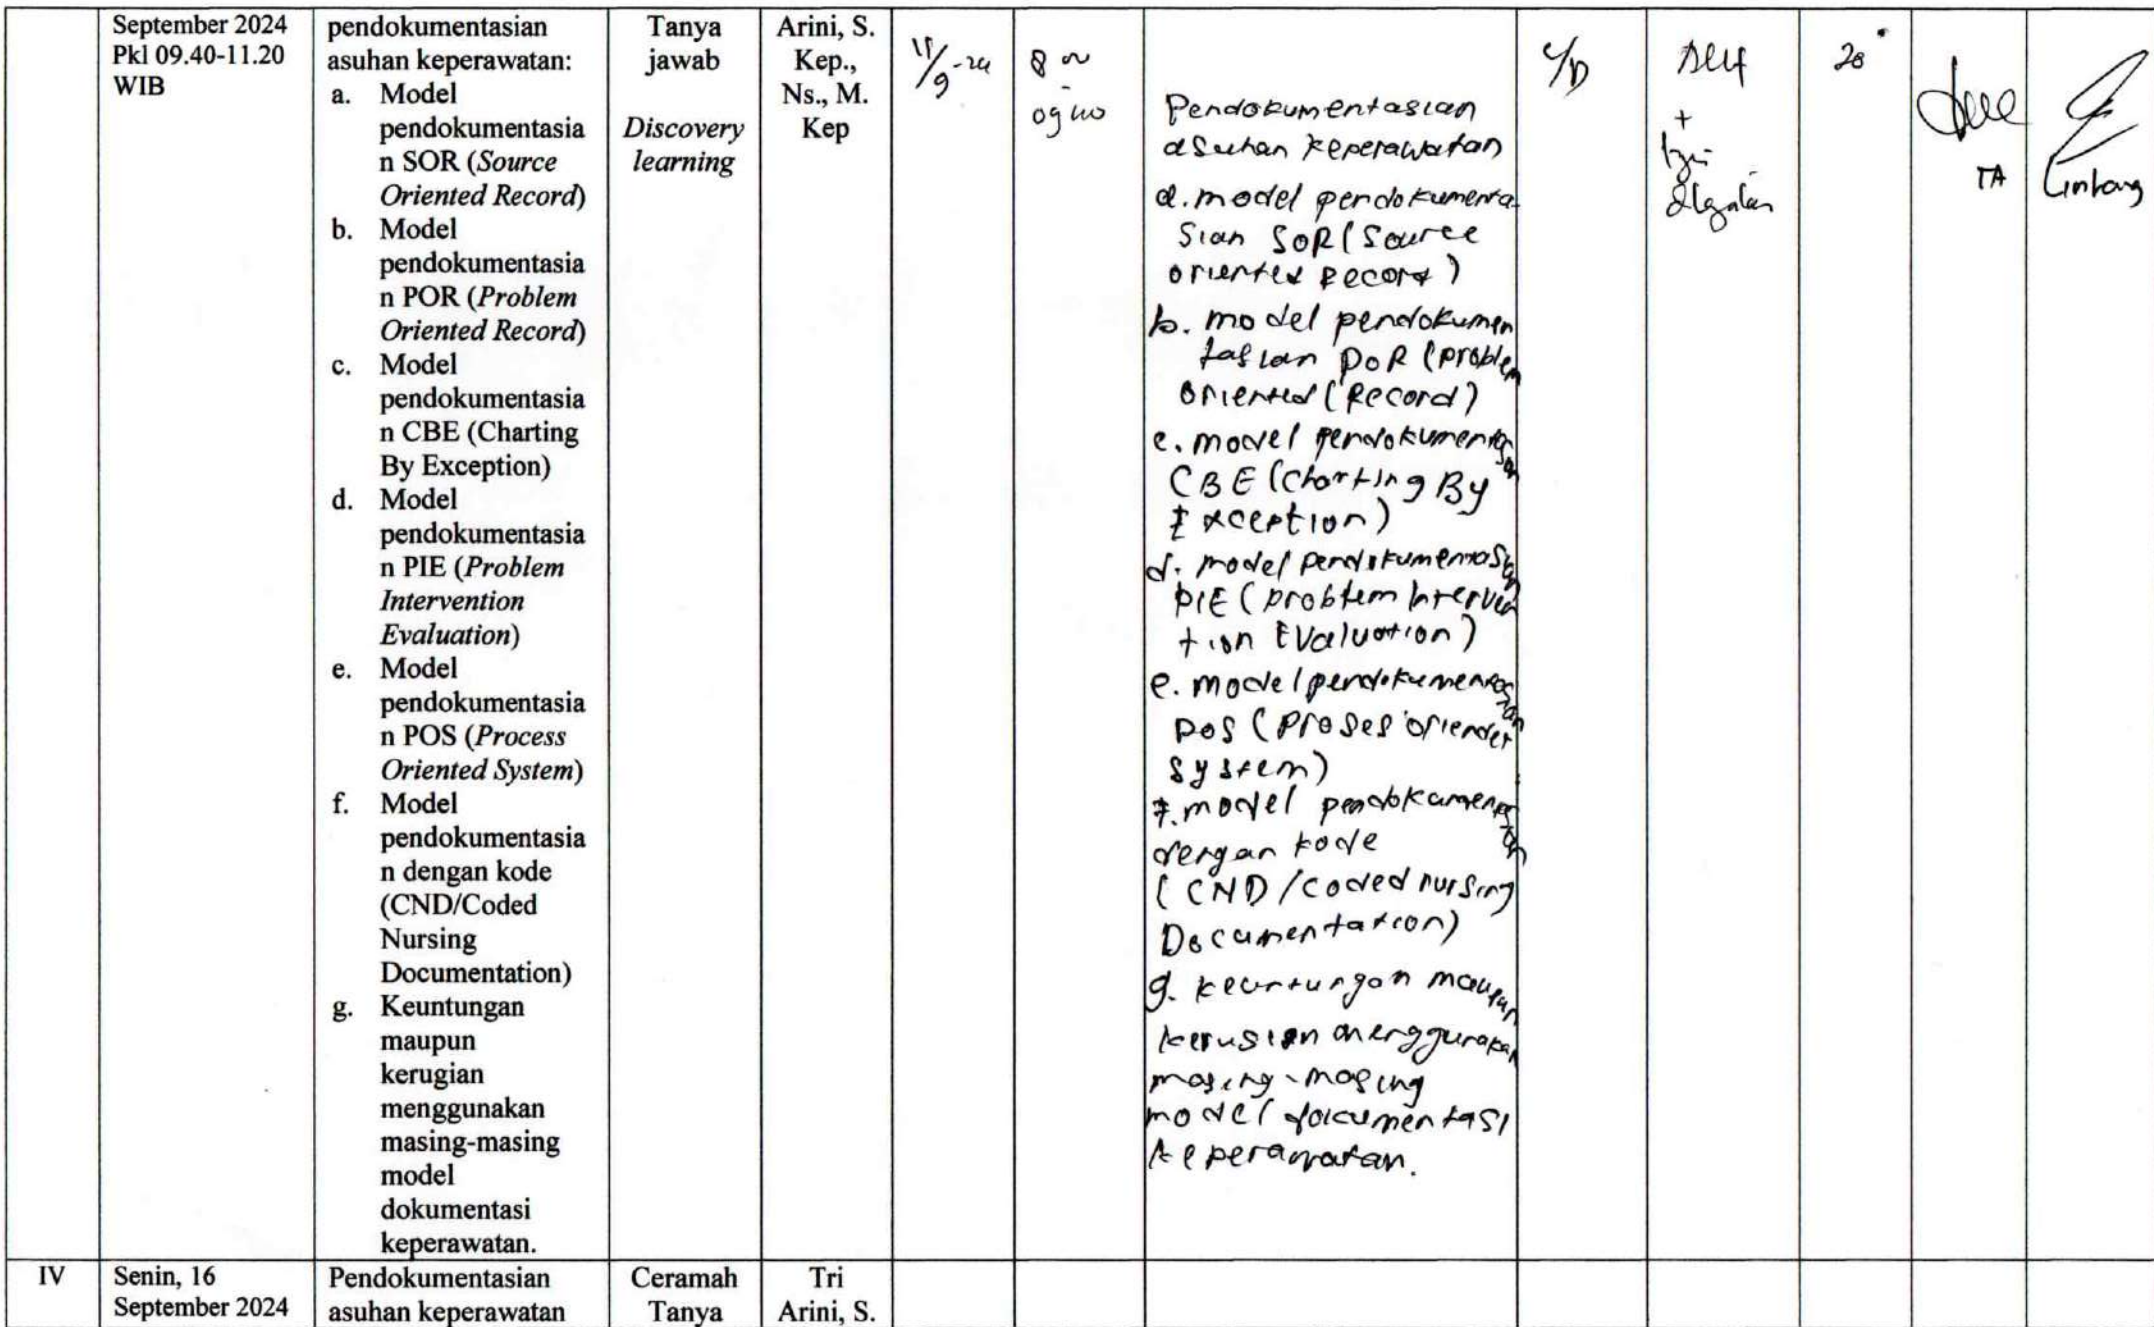 September 2024
Pkl 09.40-11.20
WIB
pendokumentasian
asuhan keperawatan:
a. Model
pendokumentasia
n SOR (Source
Oriented Record)
b. Model
pendokumentasia
n POR (Problem
Oriented Record)
c. Model
pendokumentasia
n CBE (Charting
By Exception)
d. Model
pendokumentasia
n PIE (Problem
Intervention
Evaluation)
e. Model
pendokumentasia
n POS (Process
Oriented System)
f. Model
pendokumentasia
n dengan kode
(CND/Coded
Nursing
Documentation)
g. Keuntungan
maupun
kerugian
menggunakan
masing-masing
model
dokumentasi
keperawatan.
Tanya
jawab
Discovery
learning
Arini, S.
Kep.,
Ns., M.
Kep
11/9-24
Pendokumentasian
asuhan keperawatan
a. model pendokumenta
sian SOR (Source
oriented Record)
b. model pendokumen
tasian POR (problem
oriented (Record)
c. model pendokumentasian
CBE (Charting By
Exception)
d. model pendokumentasian
PIE (problem Interven
tion Evaluation)
e. model pendokumentasian
POS (Proses oriender
system)
f. model pendokumentasian
dengan kode
(CND/coded nursing
Documentation)
g. keuntungan maupun
kerusian menggunakan
masing-masing
model dokumentasi
keperawatan.
+
28
TA
Lintang
IV
Senin, 16
September 2024
Pendokumentasian
asuhan keperawatan
Ceramah
Tanya
Tri
Arini, S.